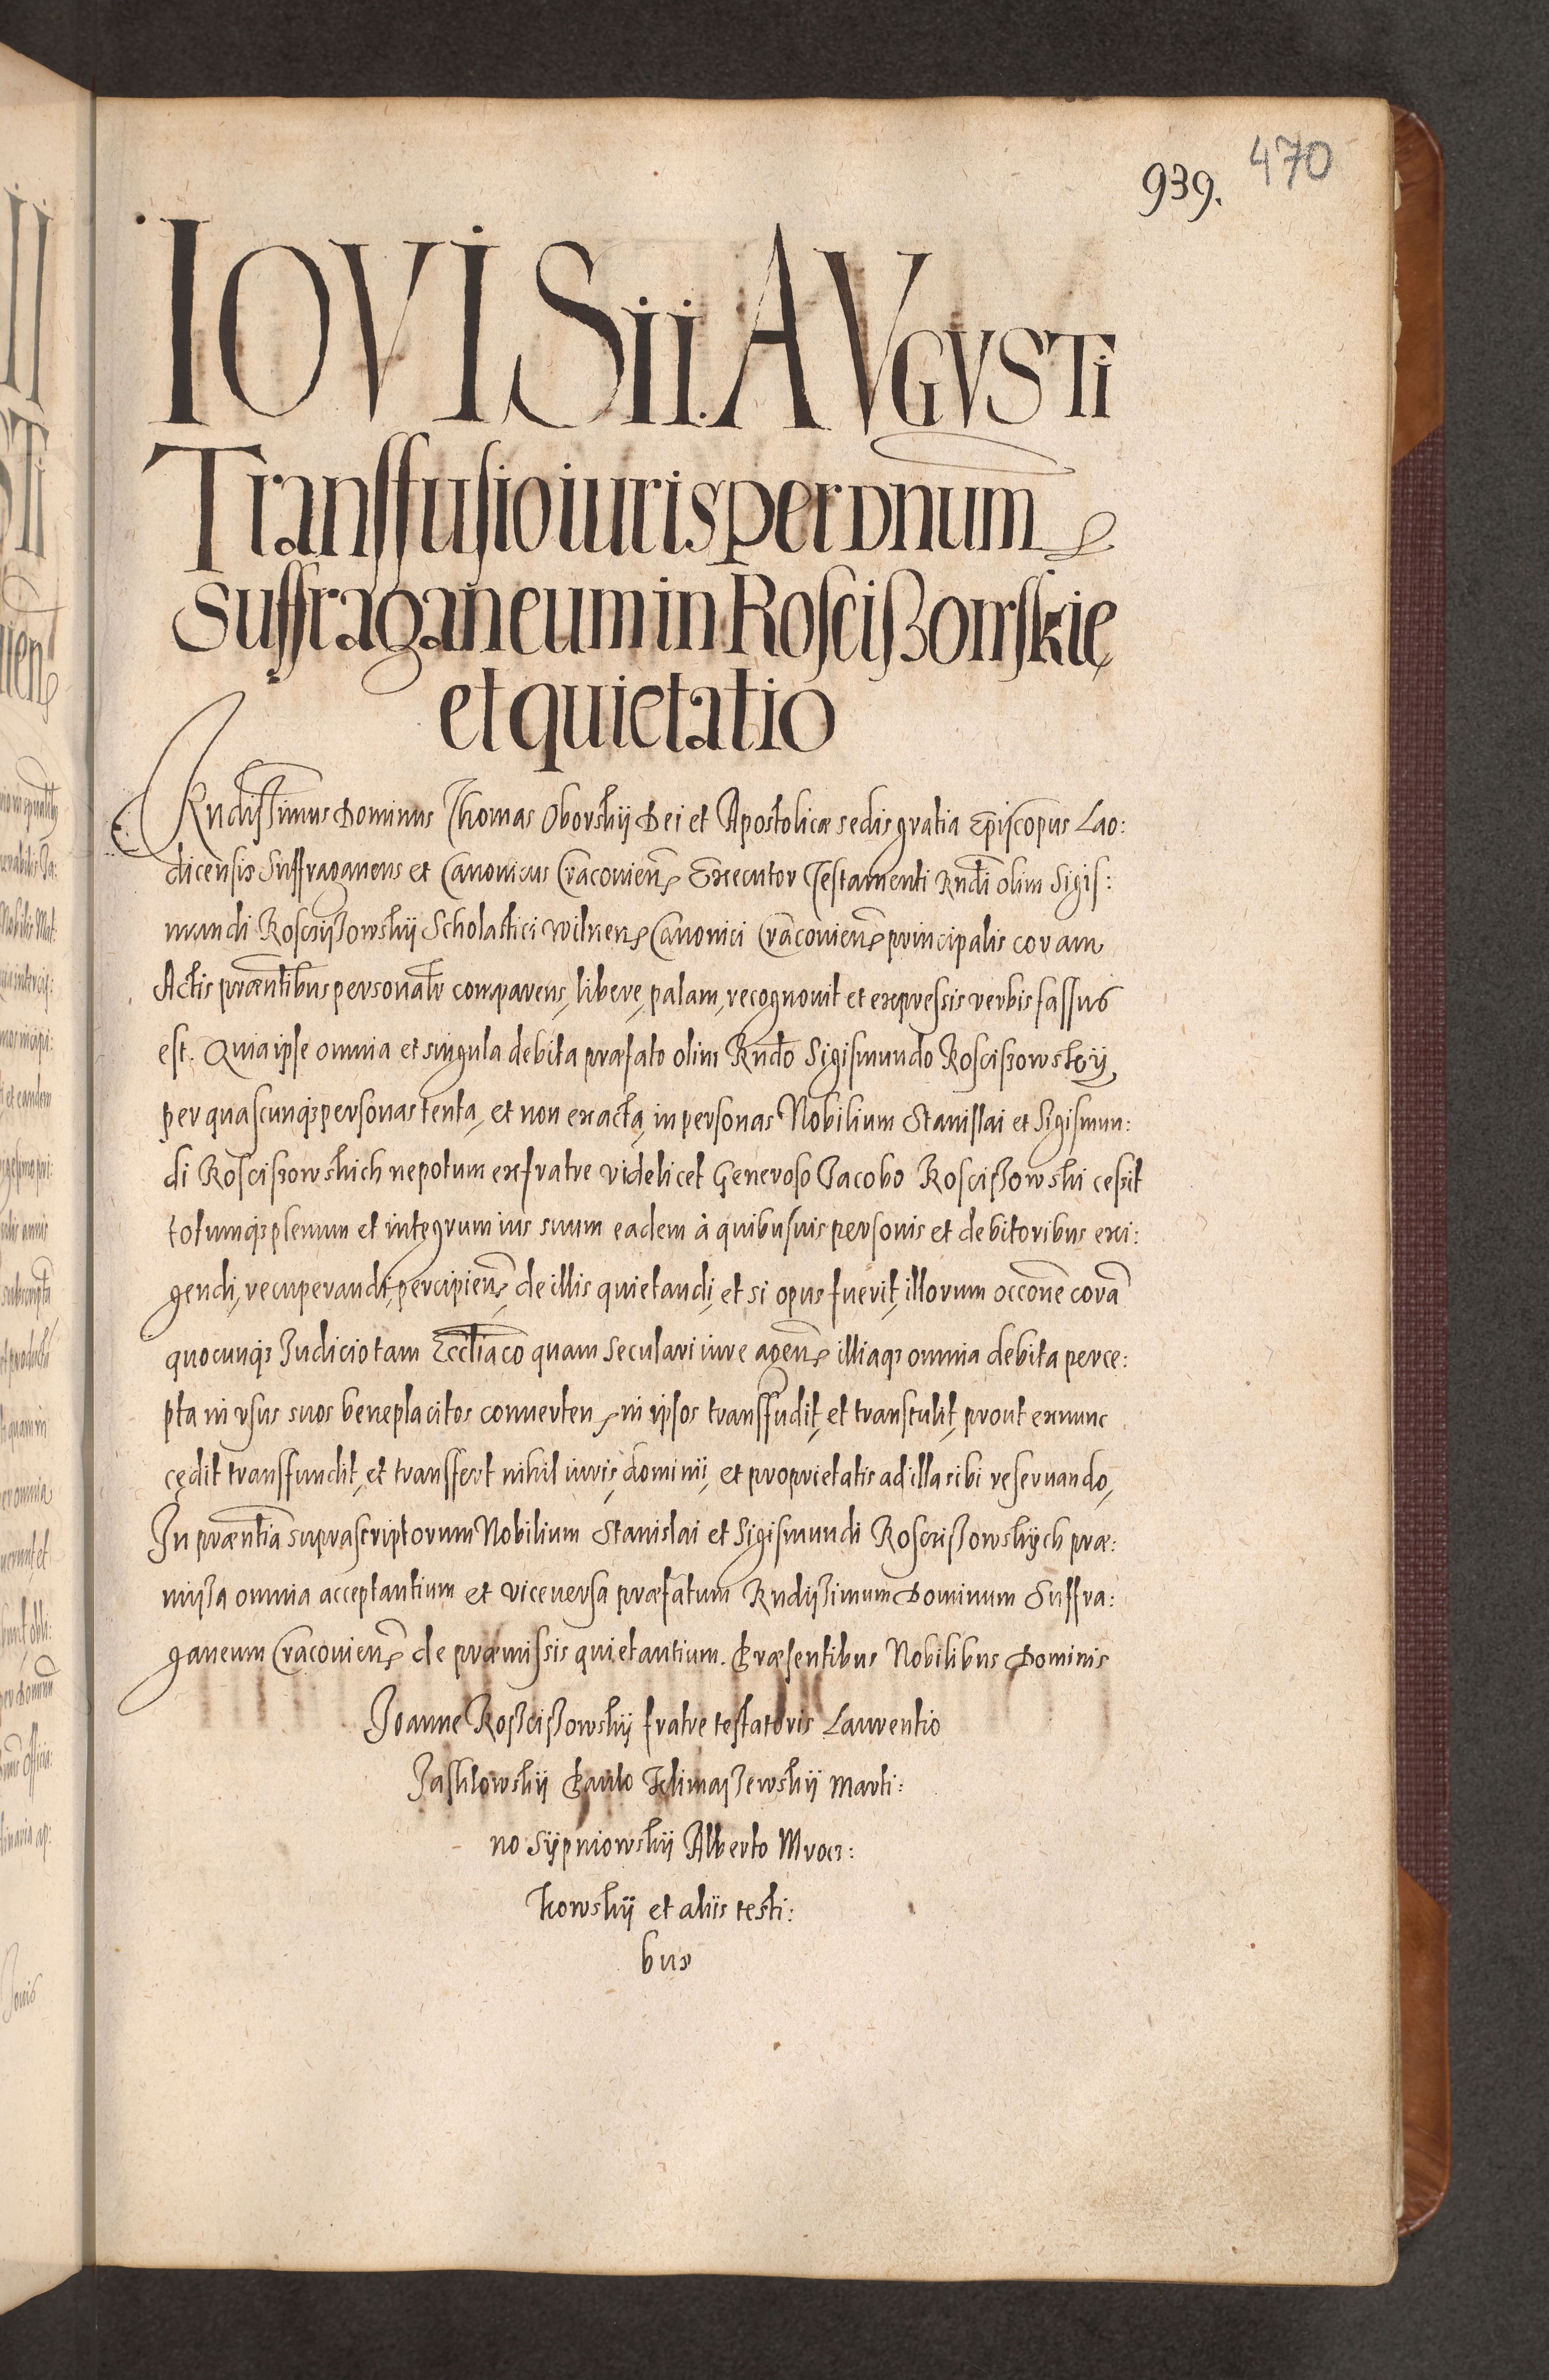 939. 470
IOVIS ii. AVGVSTi
Transsfusio iuris per Dnum
suffraganeum in Rosciszowskie
et quietatio
Rndissimus Dominus Thomas Oborskij Dei et Apostolicæ sedis gratia Ep̃iscopus Lao:
dicensis Suffraganeus et Canonicus Cracovien̄ Executor Testamenti Rndi olim Sigis:
mundi Rosciszowskij Scholastici Wilnen̄ Canonici Cracovien̄ principalis coram
Actis præntibus personalr comparens, libere, palam, recognovit et expressis verbis fassus
est. Quia ipse omnia et singula debita præfato olim Rndo Sigismundo Rosciszowskij,
per quascunq3 personas tenta, et non exacta, in personas Nobilium Stanislai et Sigismun:
di Rosciszowskich nepotum ex fratre videlicet Generoso Jacobo Rosciszowski cessit
totumq3 plenum et integrum ius suum eadem à quibusuis personis et debitoribus exi:
gendi, recuperandi, percipien̄, de illis quietandi, et si opus fuerit, illorum occōne corā
quocunq3 Judicio tam Eccliāco quam seculari iure agen̄ illiaq3 omnia debita perce:
pta in vsus suos beneplacitos conuerten̄ in ipsos transsfudit, et transtulit, prout exnunc
cedit transsfundit, et transsfert nihil iuris, dominij, et proprietatis ad illa sibi reseruando,
In præntia suprascriptorum Nobilium Stanislai et Sigismundi Rosciszowskych præ:
missa omnia acceptantium et vice uersa præfatum Rndissimum Dominum Suffra:
ganeum Cracovien̄ de præmissis quietantium. Præsentibus Nobilibus Dominis
Joanne Rosciszowskij fratre testatoris Laurentio
Jasklowskij Paulo Klimaszewskij Marti:
no Sijpniowskij Alberto Mrocz:
kowskij et aliis testi:
bus